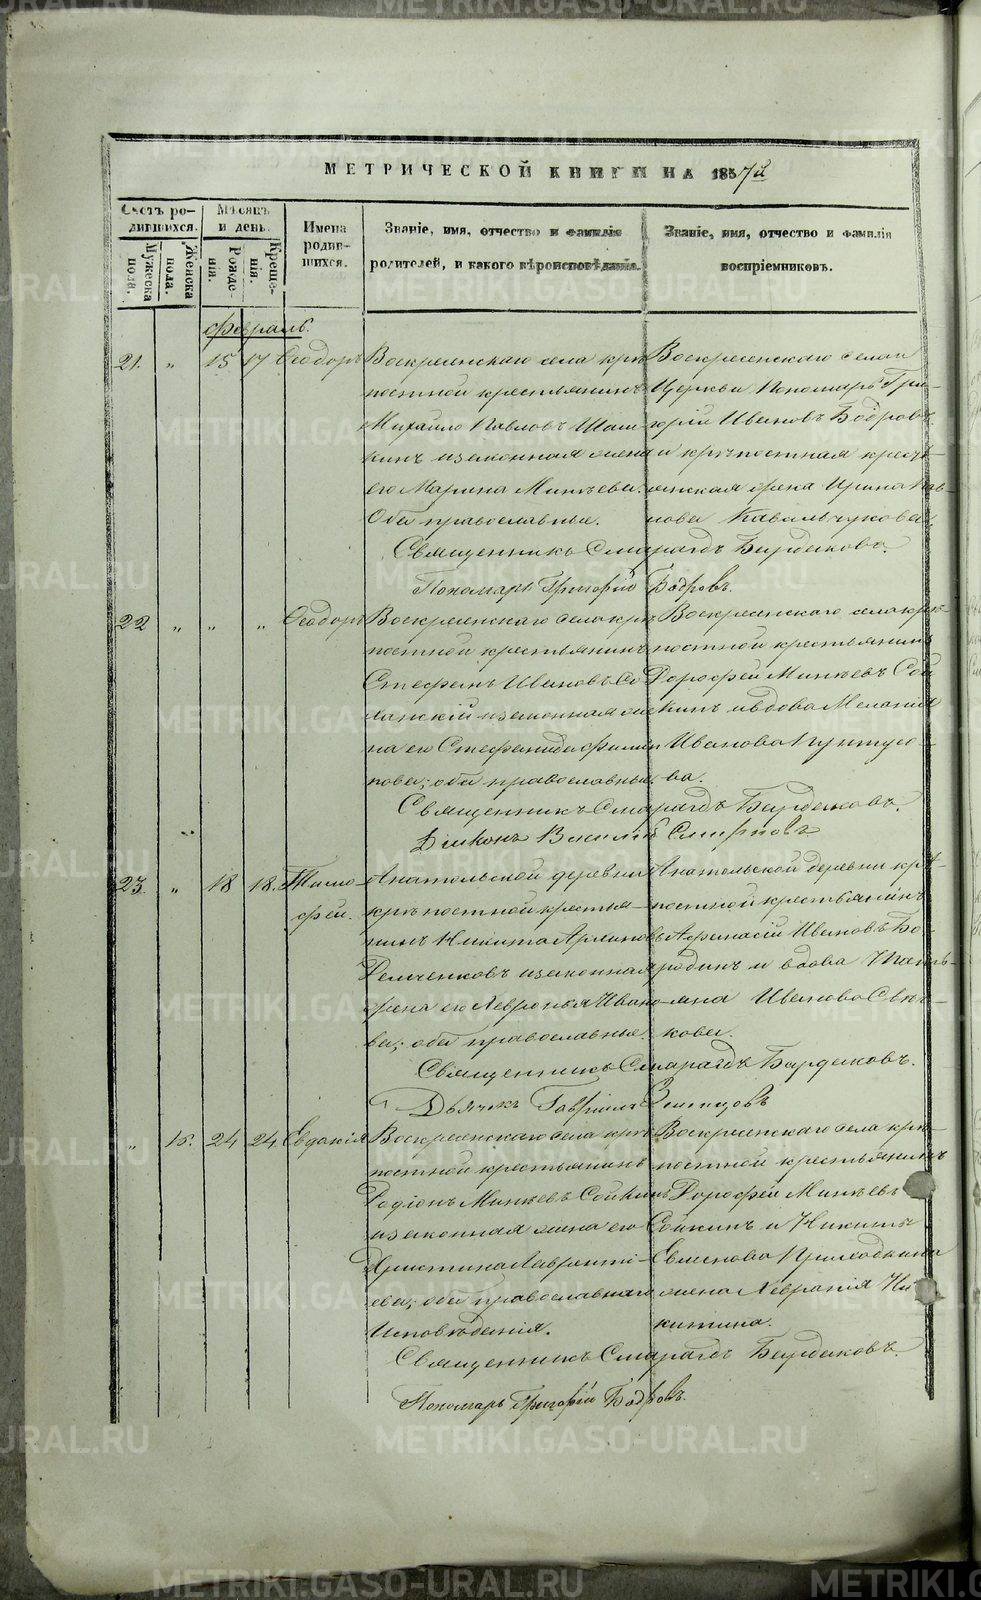 МЕТРИЧЕСКОЙ КНИГИ НА 1857й
Счетъ родившихся.
Мѣсяцъ и день.
Имена родившихся.
Званіе, имя, отчество и фамилія родителей, и какого вѣроисповѣданія.
Званіе, имя, отчество и фамилія воспріемниковъ.
Мужеска пола.
Женска пола.
Рожденія.
Крещенія.
Февраль.
21. " 15 17 Ѳеодоръ
Воскресенскаго села крѣ
постной крестьянинъ
Михайло Павловъ
кинъ изаконная жена
его Марина Минѣева.
Оба православные.
Воскресенскаго села
Церкви Пономарь Гри
горій Ивановъ Бодровъ
и крѣпостная кресть
янская Ирина
нова Кавальчукова.
Священникъ Смарагдъ Бурдаковъ.
Пономарь Григорій Бодровъ.
22 " " " Ѳеодоръ
Воскресенскаго села крѣ
постной крестьянинъ
Стефанъ Ивановъ Со
ланскій изаконная же
на его Стефанида Филип
пова; оба православные.
Воскресенскаго села крѣ
постной крестьянинъ
Дорофей Минѣевъ Сой
кинъ ивдова Меланія
Иванова
ва.
Священникъ Смарагдъ Бурдаковъ.
Діаконъ Василій Смирновъ
23. " 18 18. Тимо
фей.
Анатольской деревни
крѣпостной крестья
нинъ Никита
изаконная
жена его Февронья Ивано
ва; оба православные.
Анатольской деревни крѣ
постной крестьянинъ
Афанасій Ивановъ Бо
родинъ и вдова Улья
яна Иванова
кова.
Священникъ Смарагдъ Бурдаковъ.
Дьячекъ Гавріилъ
" 15. 24 24 Евдакія
Воскресенскаго села крѣ
постной крестьянинъ
Родіонъ Минѣевъ Сойкинъ
изаконная жена его
Христина Лавренті
ева; оба православнаго
Исповѣденія.
Воскресенскаго села крѣ
постной крестьянинъ
Дорофей Минѣевъ
Сойкинъ и Никиты
жена Хевранія Ни
китина.
Священникъ Смарагдъ Бурдаковъ.
Пономарь Григорій Бодровъ.
METRIKI.GASO-URAL.RU